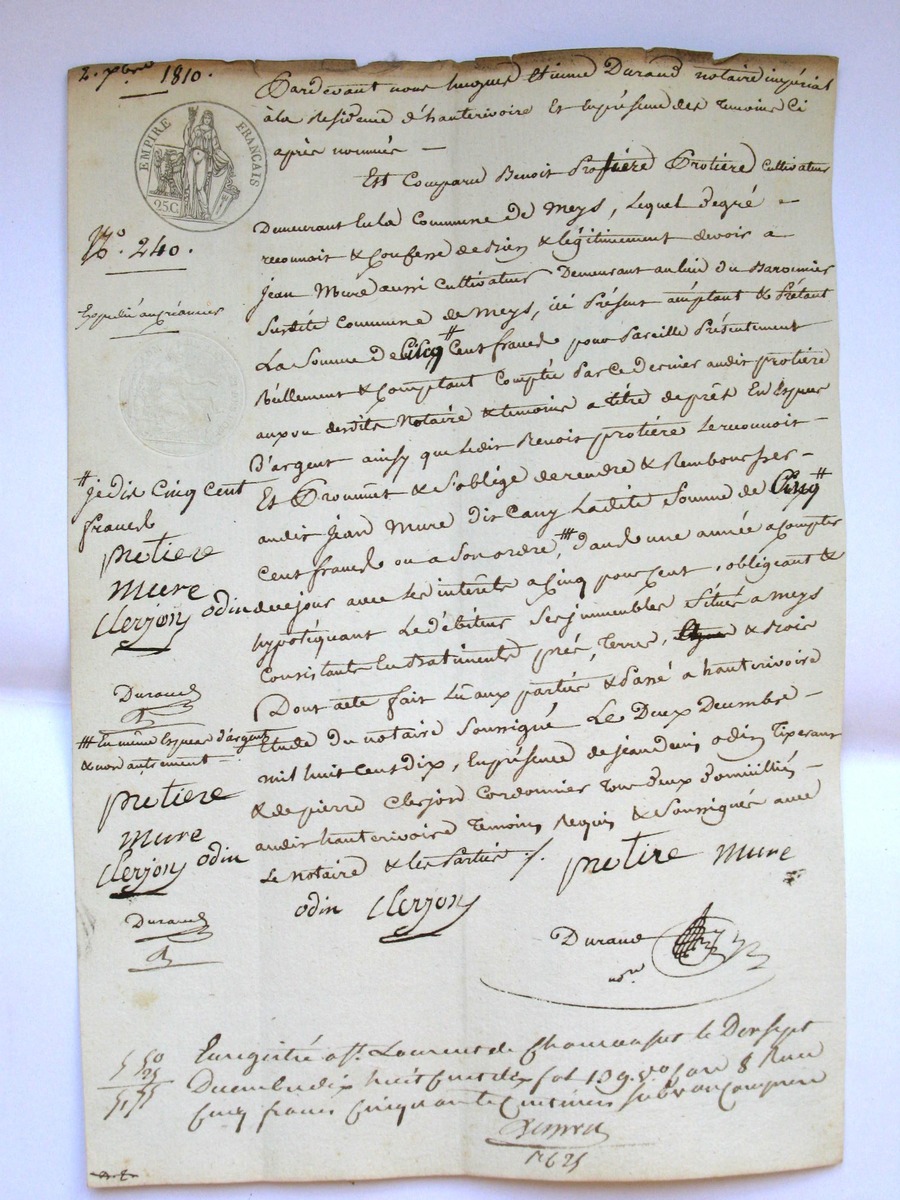 2. xbre 1810.
EMPIRE FRANÇAIS
25 C.
No. 240.
Expédié au créancier
Pardevant nous hugues Etienne Durand notaire impérial
à la Residence d'hauterivoire Et En présence des Temoins Ci
après nommés —
Est Comparu Benoit Protière Cultivateur
Demeurant en la Commune de Meys, Lequel De gré —
reconnoit & Confesse de bien & légitimement devoir a
Jean Mure aussi Cultivateur Demeurant au lieu du Baronnier
Susdite Commune de Meys, ici Présent acceptant & Prêtant
La Somme de Cinq # Cent francs pour Pareille Présentement
Réellement & Comptant Comptée Par Ce Dernier audit protière
aux vu desdits Notaire & temoins a titre de prêt En Espèces
D'argent ainsy que Ledit Benoit protière Le reconnoit —
Et Promet & S'oblige de rendre & Rembourser —
audit Jean Mure Ladite Somme de Cinq #
Cent francs ou a Son ordre, ### dans une année a Compter
de ce jour avec Les interêts a Cinq pour Cent, obligeant &
hypotéquant Le débiteur Ses immeubles Situés a Meys
Consistants En Batiments, prés, Terres, & Bois
Dont acte fait Lu aux parties & Passé a hauterivoire
Etude du notaire Soussigné Le Deux Decembre —
mil huit Cent dix, En présence de Jean Denis odin Tixerant
& de pierre Clerjon Cordonnier Tous deux Domiciliés —
audit hauterivoire Temoins Requis & Soussignés avec
Le notaire & Les Parties ./.
# je dis Cinq Cent
francs
protiere
mure
Clerjon odin
Durand
### En même Espèces d'argent
& non autrement
protiere
mure
Clerjon odin
Durand
protiere mure
odin Clerjon
Durand
nore
5 50
55
Enregistré a St. Laurent de Chamousset le Dix Sept
Decembre dix huit Cent dix fol 139 vo Case 8 Reçu
Cinq francs Cinquante Centimes Subvon Comprise